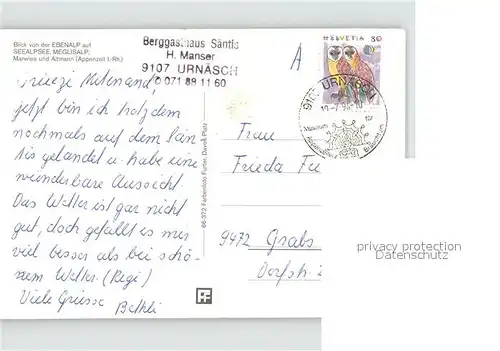 Blick von der EBENALP auf
SEEALPSEE, MEGLISALP,
Marwies und Altmann (Appenzell I.-Rh.)
Berggasthaus Säntis
H. Manser
9107 URNÄSCH
✆ 071 88 11 60
A
HELVETIA 80
9107 URNÄSCH
Museum für
Grüezi Mitenand,
jetzt bin ich trotzdem
nochmals auf dem Sän-
tis gelandet u. habe eine
wunderbare Aussicht.
Das Wetter ist gar nicht
gut, doch gefällt es mir
viel besser als bei schö-
nem Wetter. (Regi)
Viele Grüsse
Bethli
66-372 Farbenfoto Furter, Davos Platz
Frau
Frieda
9472 Grabs
Dorfstr.
privacy protection
Datenschutz
FF